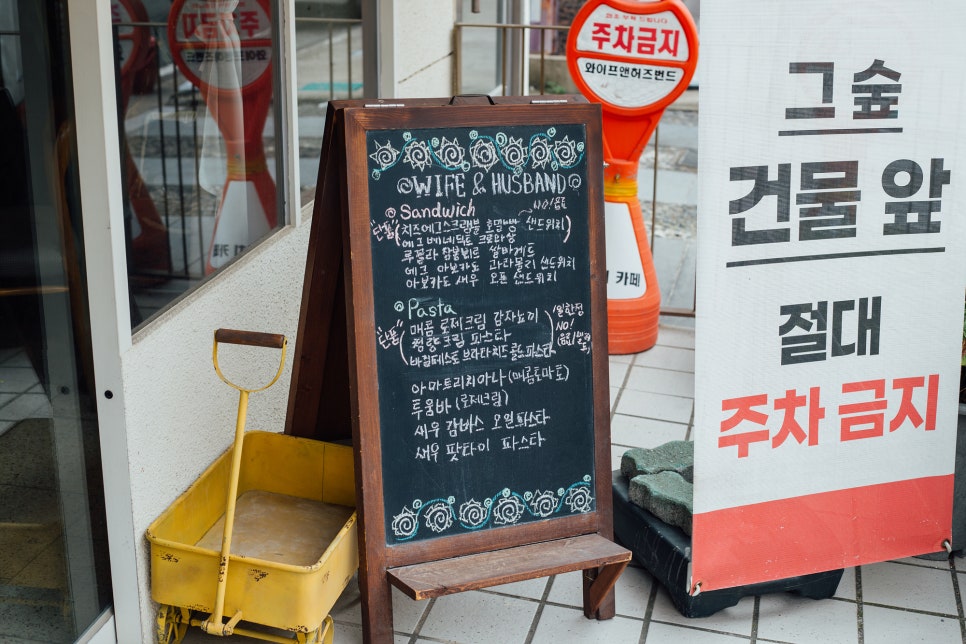 주차금지
와이프앤허즈번드
카페
그숲
건물 앞
절대
주차 금지
WIFE & HUSBAND
Sandwich
NO!
"단품"
치즈에그스크램블 호밀빵 샌드위치
에그베네딕트 크로와상
루꼴라 잠봉뵈르 쌀바게트
에그 아보카도 과카몰리 샌드위치
아보카도 새우 오픈 샌드위치
Pasta
"단품"
매콤 로제크림 감자뇨끼
명란크림 파스타
바질페스토 브라타치즈
NO!
아마트리치아나 (매콤토마토)
투움바 (로제크림)
새우 감바스 오일파스타
새우 팟타이 파스타